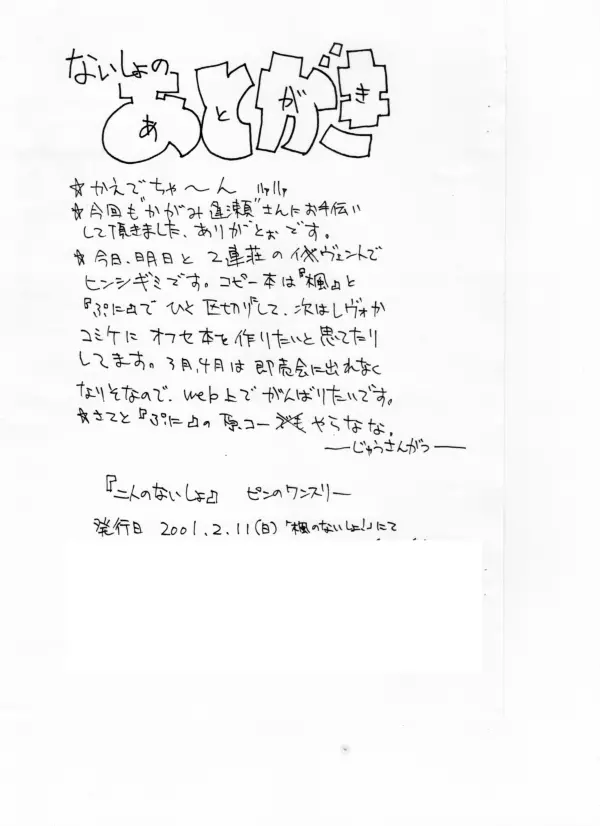 ないしょの
あとがき
☆かえでちゃ〜ん
☆今回も"かがみ逢瀬"さんにお手伝い
して頂きました、ありがとぉです。
☆今日、明日と2連荘のイヴェントで
ヒンシギミです。コピー本は『楓』と
『ぷに』でひと区切りして、次はレヴォか
コミケにオフセ本を作りたいと思てたり
してます。3月、4月は即売会に出れなく
なりそなので、web上でがんばりたいです。
☆さてと『ぷに』の原コーやらなな。
―じゅうさんがつ―
『二人のないしょ』 ピンのワンスリー
発行日 2001.2.11(日)「楓のないしょ!」にて